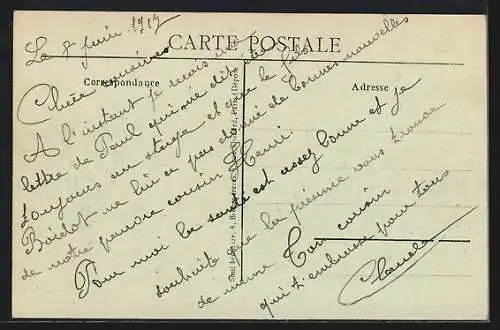 Le 8 juin 1917
CARTE POSTALE
Correspondance
Adresse
Chère cousine
A l'instant je reçois une
lettre de Paul qui me dit être
toujours au stage et que le fils
Boidot ne lui a pas donné de bonnes nouvelles
de notre pauvre cousin Henri.
Pour moi la santé est assez bonne et je
souhaite que la présente vous trouve
de même
Ton cousin
qui t'embrasse pour tous